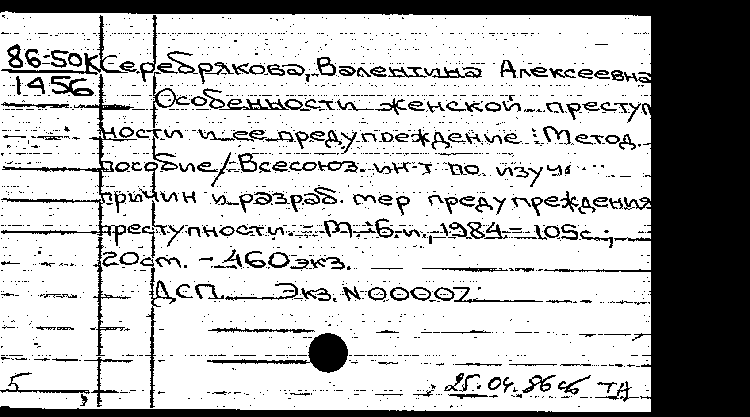 86-50К Серебрякова, Валентина Алексеевна
1456
Особенности женской преступ
ности и ее предупреждение : Метод.
пособие / Всесоюз. ин-т по изуч.
причин и разраб. мер предупреждения
преступности. - М. : Б.и., 1984 - 105с.;
20см. - 460экз.
ДСП. Экз. N 00007.
5 25.04.86 ТА